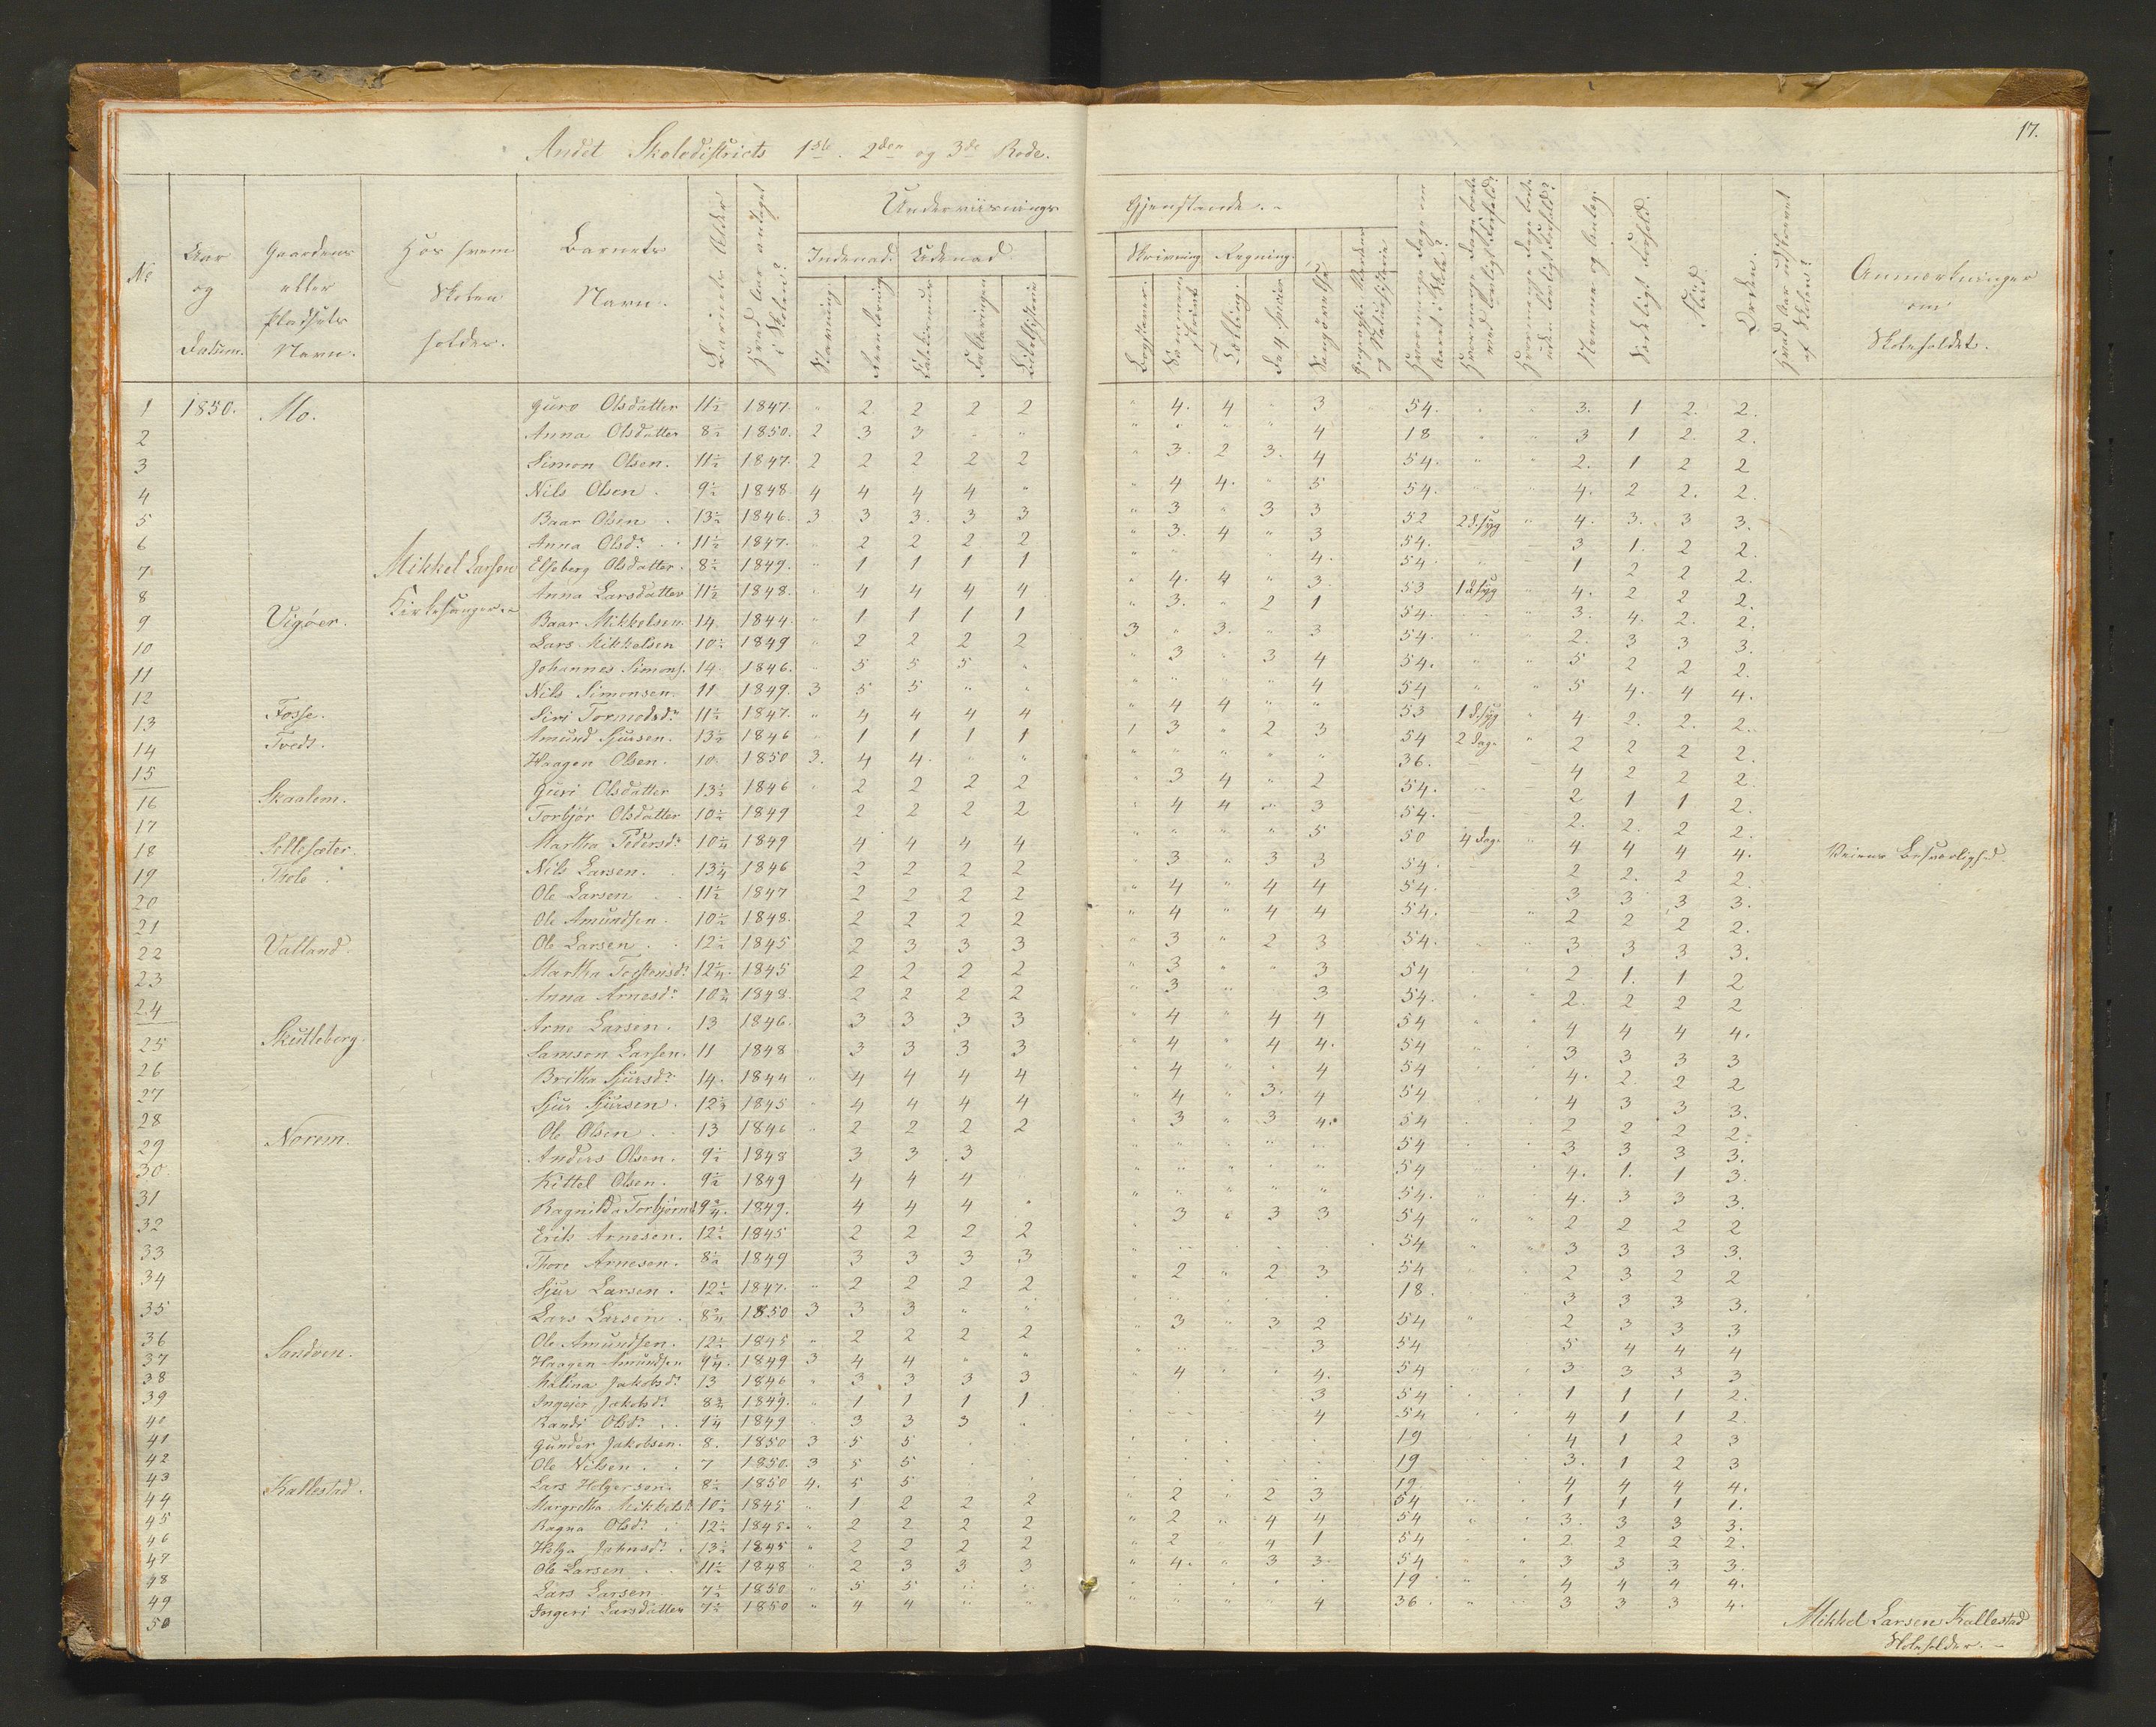 17.
Andet Skoledistricts 1ste. 2den og 3de Rode.
Underviisnings Gjenstande.
Indenad. Udenad Skrivning Regning.
No Aar og Datum. Gaardens eller Pladsets Navn. Hos hvem Skolen holdes. Barnets Navn. Barnets Alder Hvad Aar antaget i Skolen? Stavning. Bogstaver. Tælling. Sangøvelse Nemme og Anlæg. Sædeligt Forhold. Flid. Orden. Hvad Aar udskrevet af Skolen? Anmærkninger om Skoleholdet.
1 1850. Mo. Guro Olsdatter 11½ 1847. " 2 2 2 2 " 4. 4 " 3 54. " " 3. 1 2. 2.
2 Anna Olsdatter 8½ 1850. 2 3 3 " " " " " " 4 18 " " 3 1 2. 2.
3 Simon Olsen. 11½ 1847. 2 2 2 2 2 " 3. 2 3. 4 54. " " 2. 1 2 2
4 Nils Olsen. 9½ 1848 4 4 4 4 " " 4 4. " 5 54. " " 4. 2 2. 2.
5 Baar Olsen. 13½ 1846. 3 3 3. 3 3 " 3 " 3 3 52 2 d. syg " 4. 3. 3 3.
6 Anna Olsdr. 11½ 1847. " 2 2 2 2 " 3. 4 " 3 54. 3 1. 2 2.
7 Mikkel Larsen Elseberg Olsdatter. 8½ 1849. " 1 1 1 1 4. 54. 1 2 2 2.
8 Kirkesanger. Anna Larsdatter 11½ 1848. " 4 4 4 4 " 4. 4 " 3. 53 1 d. syg " 4. 2 2 2.
9 Vigøer. Baar Mikkelsen. 14. 1844. " 1 1 1 1 " 3. " 2 1 54. 3. 4. 2. 2.
10 Lars Mikkelsen 10½ 1849 " 2 2 2 2 3 " 3. " 3 54. 2. 3 3 3.
11 Johannes Simons. 14. 1846. " 5 5 5 " " 3 " 3 4 54. 5 2 2 2.
12 Nils Simonsen. 11. 1849. 3 5 5 " " " " " " 4 54 " " 5 4. 4 4.
13 Fosse. Siri Tormodsdr 11½ 1847. " 4 4 4 4 " 4 4 " " 53 1 d. syg " 4 2. 2. 2.
14 Tvedt. Amund Sjursen. 13½ 1846 " 1 1 1 1 1 3 " 2 3 54 2 dage " 2 2 2 2.
15 Haagen Olsen. 10. 1850 3. 4 4. " " " " " " " 36. 4 2 2 2.
16 Skaalem. Guri Olsdatter 13½ 1846 " 2 2 2 2 " 3 4 " 2 54. 2 1 1 2.
17 Torbjør Olsdatter 10½ 1849 2 2 2 2 " 4 4 " 3 54. 2. 2. 2 2.
18 Sellesæter. Martha Pedersdr 10¼ 1849 4 4 4 4 " " " " 5 50 4 dage " 4 4 4 4. Veiens Besværlighed.
19 Thole. Nils Larsen. 13¼ 1846 2 2 2 2 " 3 " 3 3 54. 2 2. 2 2.
20 Ole Larsen 11½ 1847 2 2 2 2 " 4 " 4 4 54. 3 3 3 3.
21 Ole Amundsen. 10½ 1848. 2 2 2 2 " 4 " 4 4 54. 2 2 2 2.
22 Valland. Ole Larsen. 12½ 1845 2 3 3 3 " 3 " 2 3 54. 3 3 3 3.
23 Martha Torstensdr 12¼. 1845 2 2 2 2 " 3 " " 3 54 2 1. 1 2
24 Anna Arnesdr 10¾ 1848. 2 2 2 2 3 3 54. 2. 2 2 2
25 Skutleberg. Arne Larsen. 13 1846. 3 3 3 3 " 4 " 4 4 54 4 4 4 4.
26 Samson Larsen. 11 1848 3 3 3 3 " 4 " 4 4. 54 3 3 3 3
27 Britha Sjursdr 14. 1844 " 4 4 4 4 " 4 " " 4 54 4. 2. 2 2
28 Sjur Sjursen. 12½ 1845 " 4 4 4 4 " 4 " 3. 4 54 4 3 3 3.
29 Norem. Ole Olsen. 13 1846 " 2 2 2 2 " 3 " 3 4. 54 2 2 2 2.
30. Anders Olsen. 9½ 1848 3 3 3 54 3 3 3 3.
31 Kittel Olsen. 9½ 1849 4 4 4 54 4. 1. 1 3.
32 Ragnilda Torbjørnsd 9¾. 1849. 4 4 4 " 54. 4. 3 3 3.
33 Erik Arnesen. 12½ 1845 2 2 2 2 3 " 3 3 54 " " 2 2 2 2
34 Thore Arnesen. 8½ 1849 3 3 3 3 54 " " 3 3 3 3.
35 Sjur Larsen. 12½ 1847. " 2 2 2 2 " 2 " 2 3 54 2 3 2 2
36 Lars Larsen. 8¾ 1850 3 3 3 " " 18. 3 3 3 3.
37 Sandven. Ole Amundsen. 12½ 1845 " 2 2 2 2 " 3 " 3 2 54 " 2 3 3 3
38 Haagen Amundsen 9¼. 1849 3 4 4 " " 3 54 5 4 4 4
39 Malina Jakobsdr 13 1846 " 3 3 3 3 " 4 " " 4. 54 3 3 3 3
40 Ingejer Jakobsdr 8¾ 1849. " 1 1 1 1 3 54 1 1 1 2.
41 Randi Olsdr 9¼ 1849 " 3 3 3 " 4 54 4 1 1 2.
42 Gunder Jakobsen. 8. 1850 3 5 5 19 4 1 2 3
43 Ole Nilsen. 7 1850. 3 5 5 19 3. 1 2 3
44 Kallestad. Lars Holgersen. 8½ 1850 4. 5 5 19. 4 4 4 4.
45 Margretha Mikkelsd. 10½ 1845 " 1 2 2 2 " 2 " 2 3 54 1 1 1 1.
46 Ragna Olsdr 12½ 1845. " 2 2 2 2 " 2 " 4 4 54 3. 3 3 3.
47 Helga Johnsdr 13½ 1845 " 2 2 2 2 " 2 " 4 1 54 2. 2 2 2.
48 Ole Larsen 11½ 1848 " 2 3 3 3 " 4. " 3 3. 54 3 3 3 3.
49 Lars Larsen 7½ 1850 " 5 5 19 4 4 4 4.
50 Ingeri Larsdatter 7½ 1850 " 4 4 4 36. 3 3 3 4.
Mikkel Larsen Kallestad
Skoleholder.